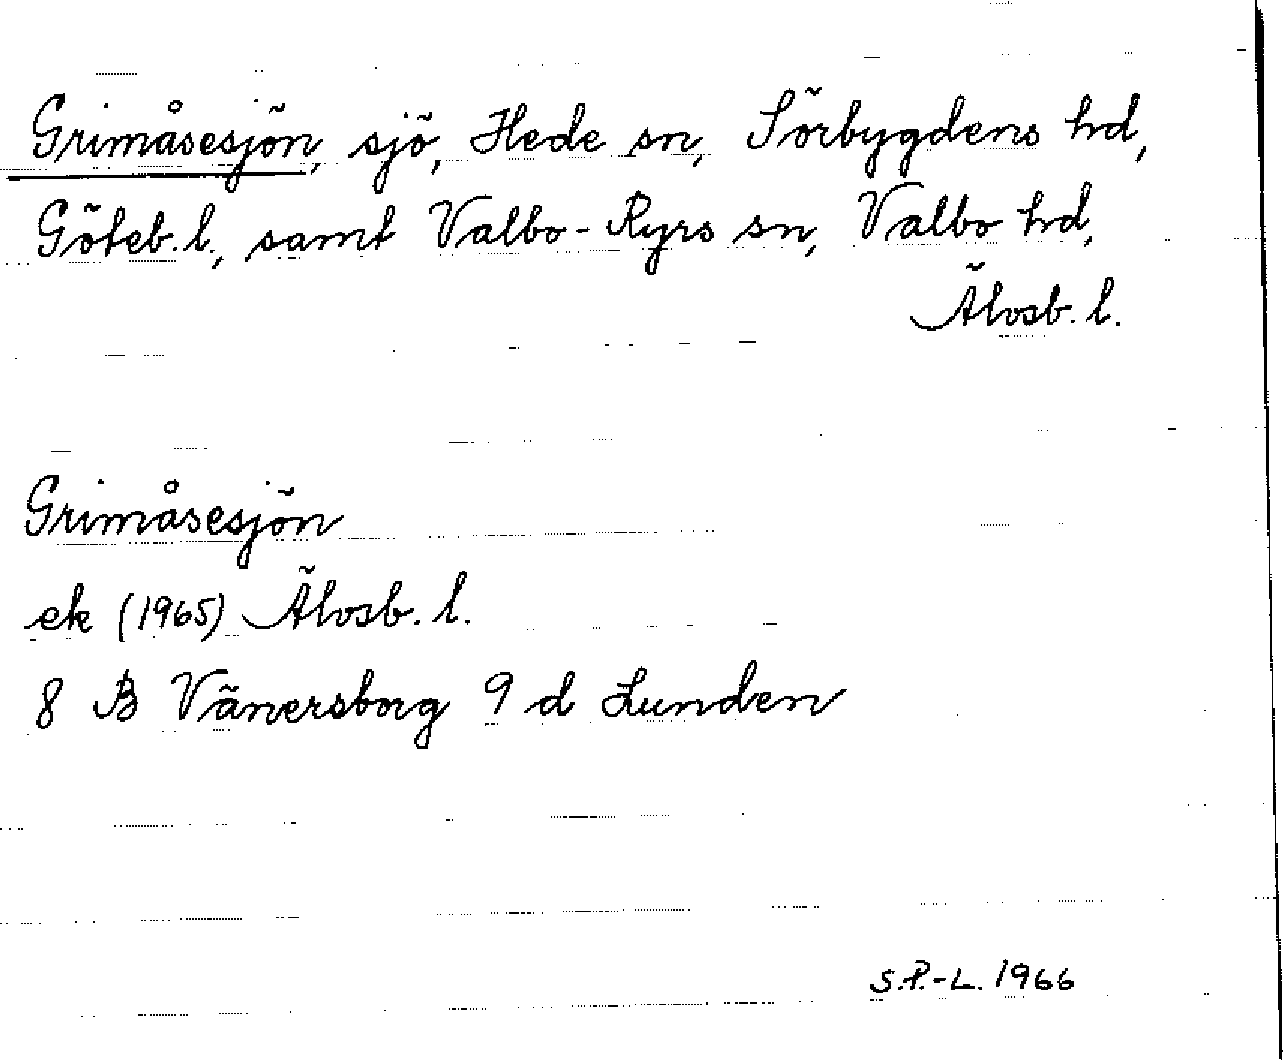 Grimåsesjön, sjö, Hede sn, Sörbygdens hd,
Göteb. l., samt Valbo-Ryrs sn, Valbo hd,
Älvsb. l.
Grimåsesjön
ek (1965) Älvsb. l.
8 B Vänersborg 9 d Lunden
S.P.-L. 1966